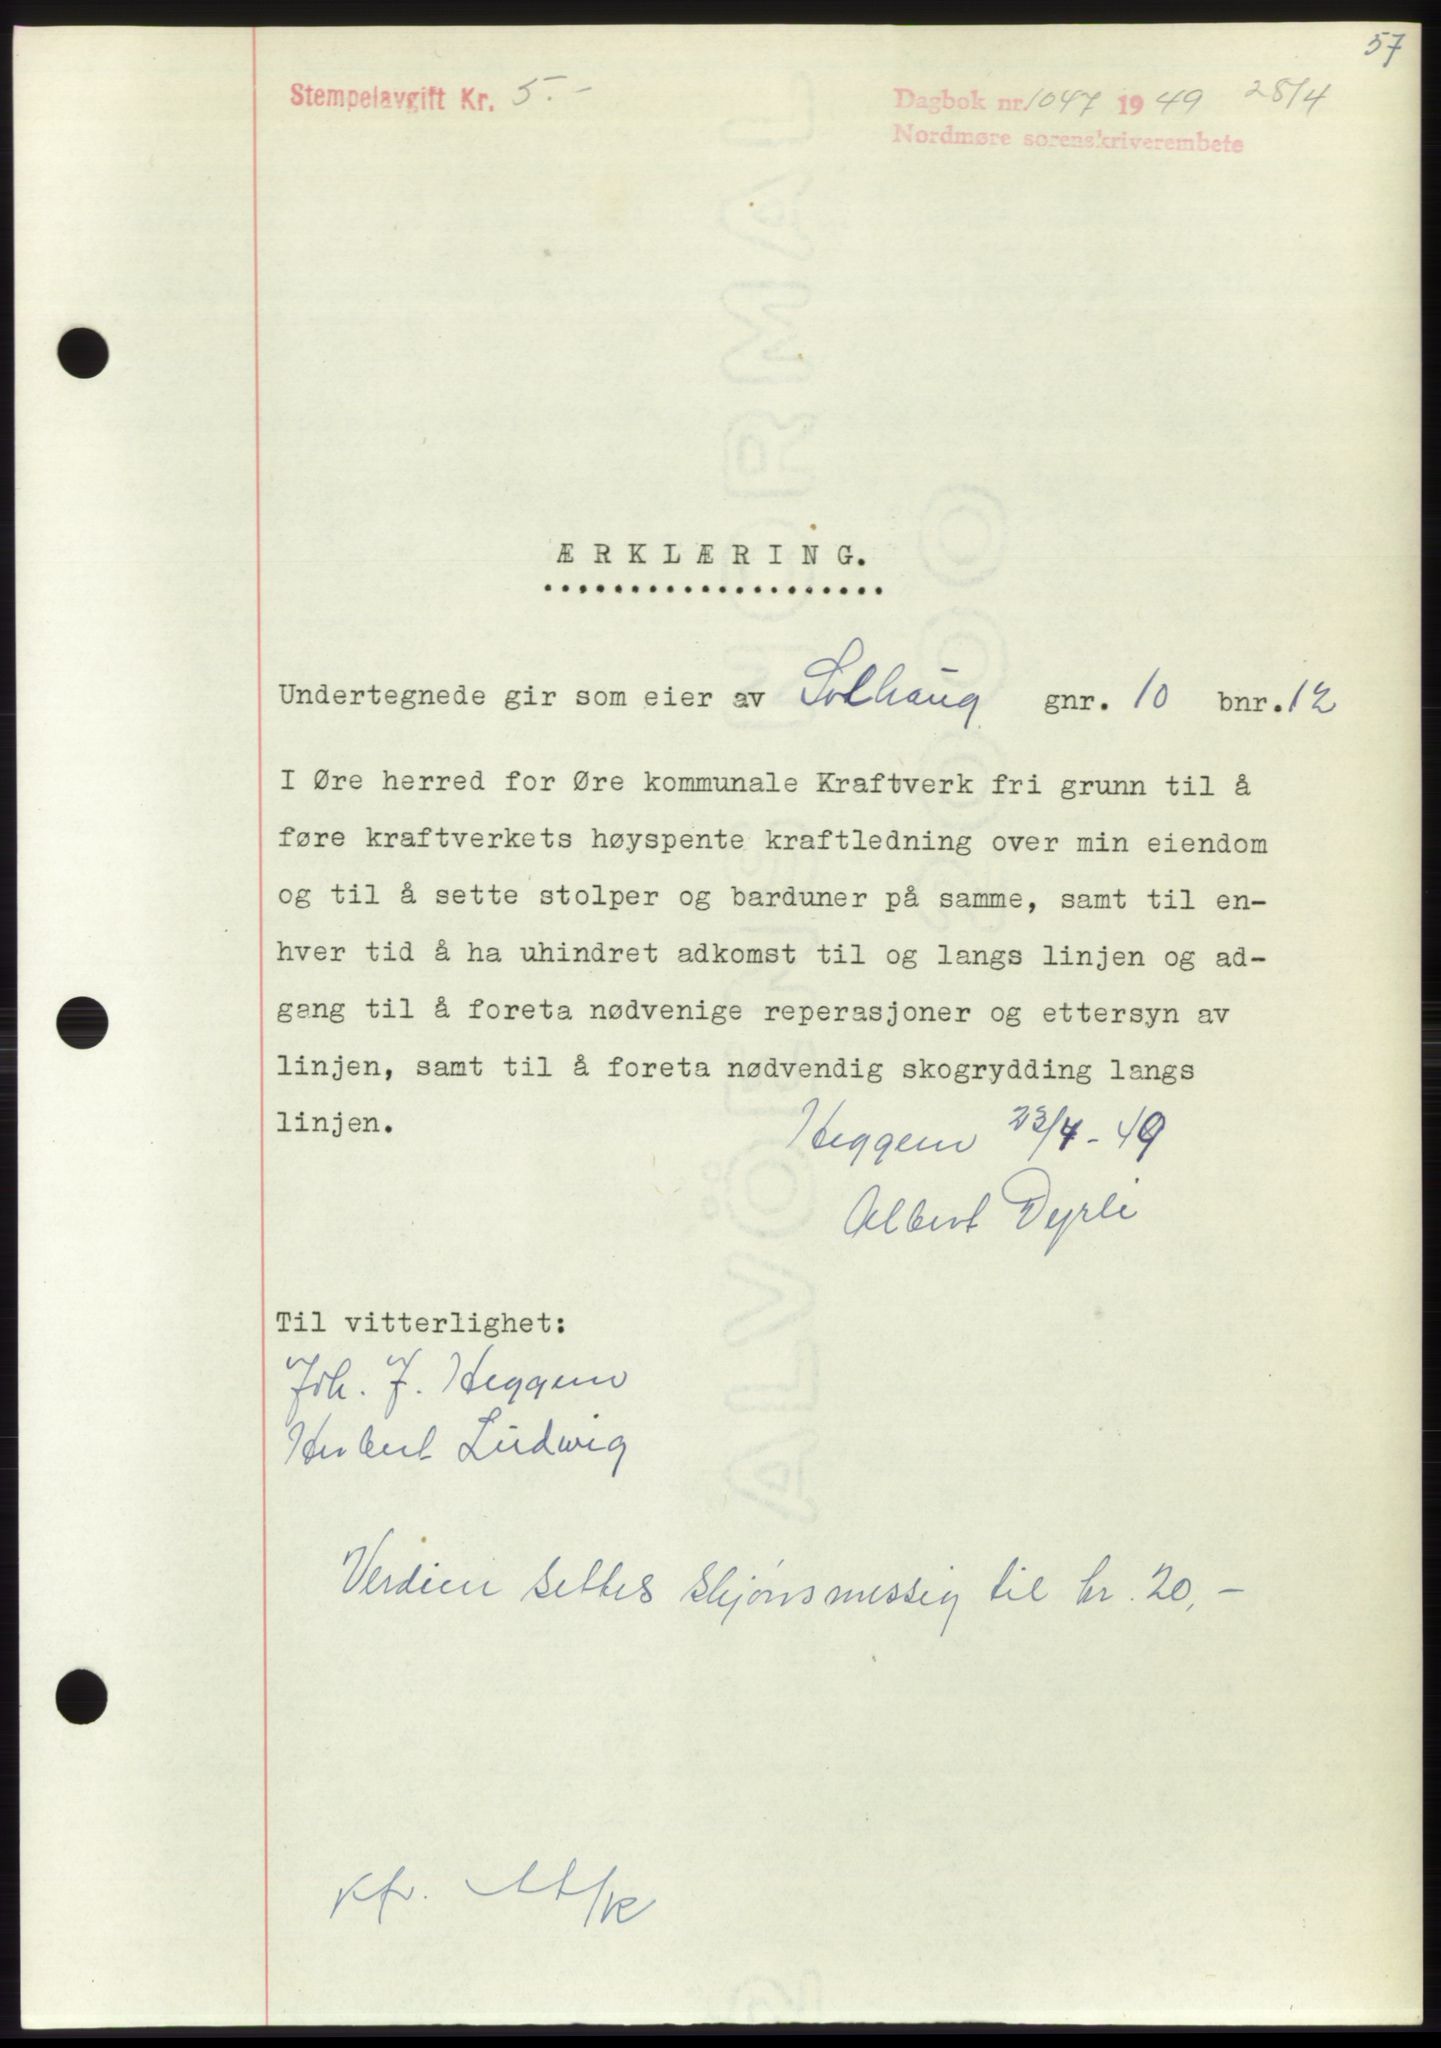 57
Stempelavgift Kr. 5.-
Dagbok nr. 1047 1949 28/4
Nordmøre sorenskriverembete
ÆRKLÆRING.
Undertegnede gir som eier av Solhaug gnr. 10 bnr. 12
I Øre herred for Øre kommunale Kraftverk fri grunn til å
føre kraftverkets høyspente kraftledning over min eiendom
og til å sette stolper og barduner på samme, samt til en-
hver tid å ha uhindret adkomst til og langs linjen og ad-
gang til å foreta nødvenige reperasjoner og ettersyn av
linjen, samt til å foreta nødvendig skogrydding langs
linjen.
Heggem 23/4-49
Albert Dyrli
Til vitterlighet:
Joh. J. Heggem
Herbert Ludwig
Verdien settes skjønsmessig til kr. 20,-
Kfr.